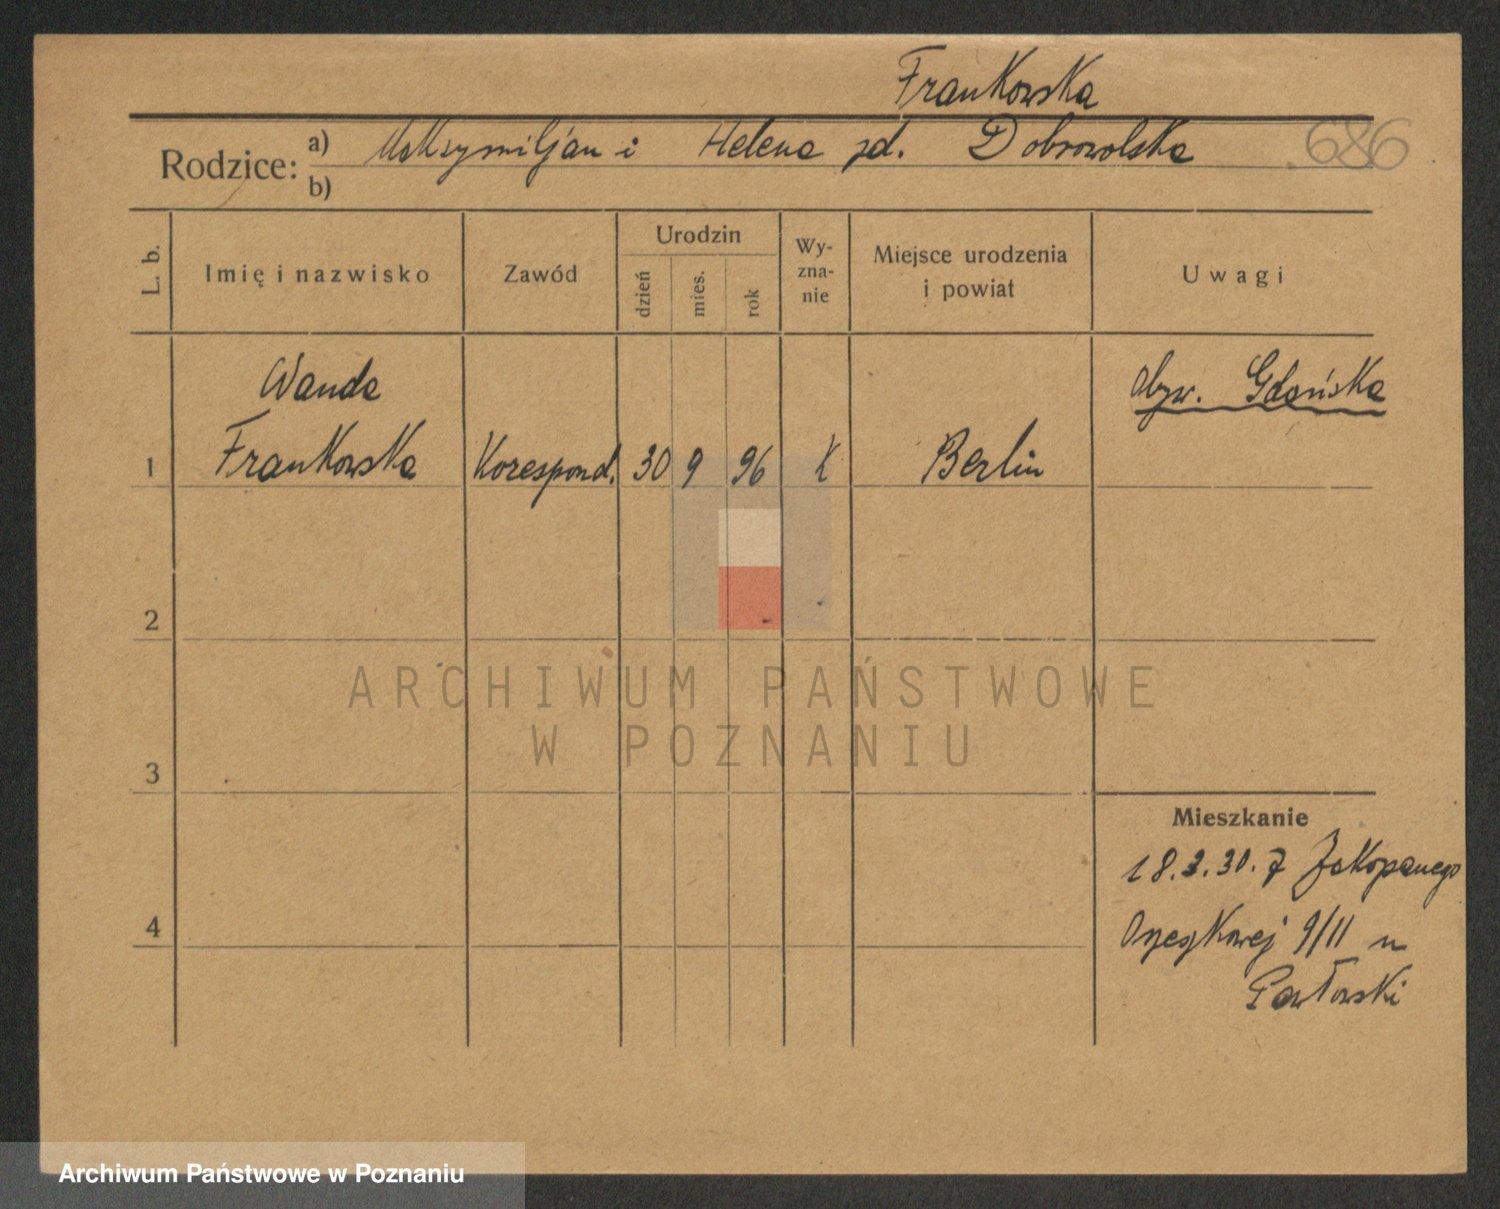 Frankowska
Rodzice: a) Maksymiljan i Helena zd. Dobrowolska 686
b)
L. b. Imię i nazwisko Zawód Urodzin dzień mies. rok Wy-zna-nie Miejsce urodzenia i powiat Uwagi
Wanda obyw. Gdańska
1 Frankowska Korespond. 30 9 96 K Berlin
2
ARCHIWUM PAŃSTWOWE
W POZNANIU
3
Mieszkanie
18.3.30. z Zakopanego
4 Orzeszkowej 9/11 u
Pawłowski
Archiwum Państwowe w Poznaniu